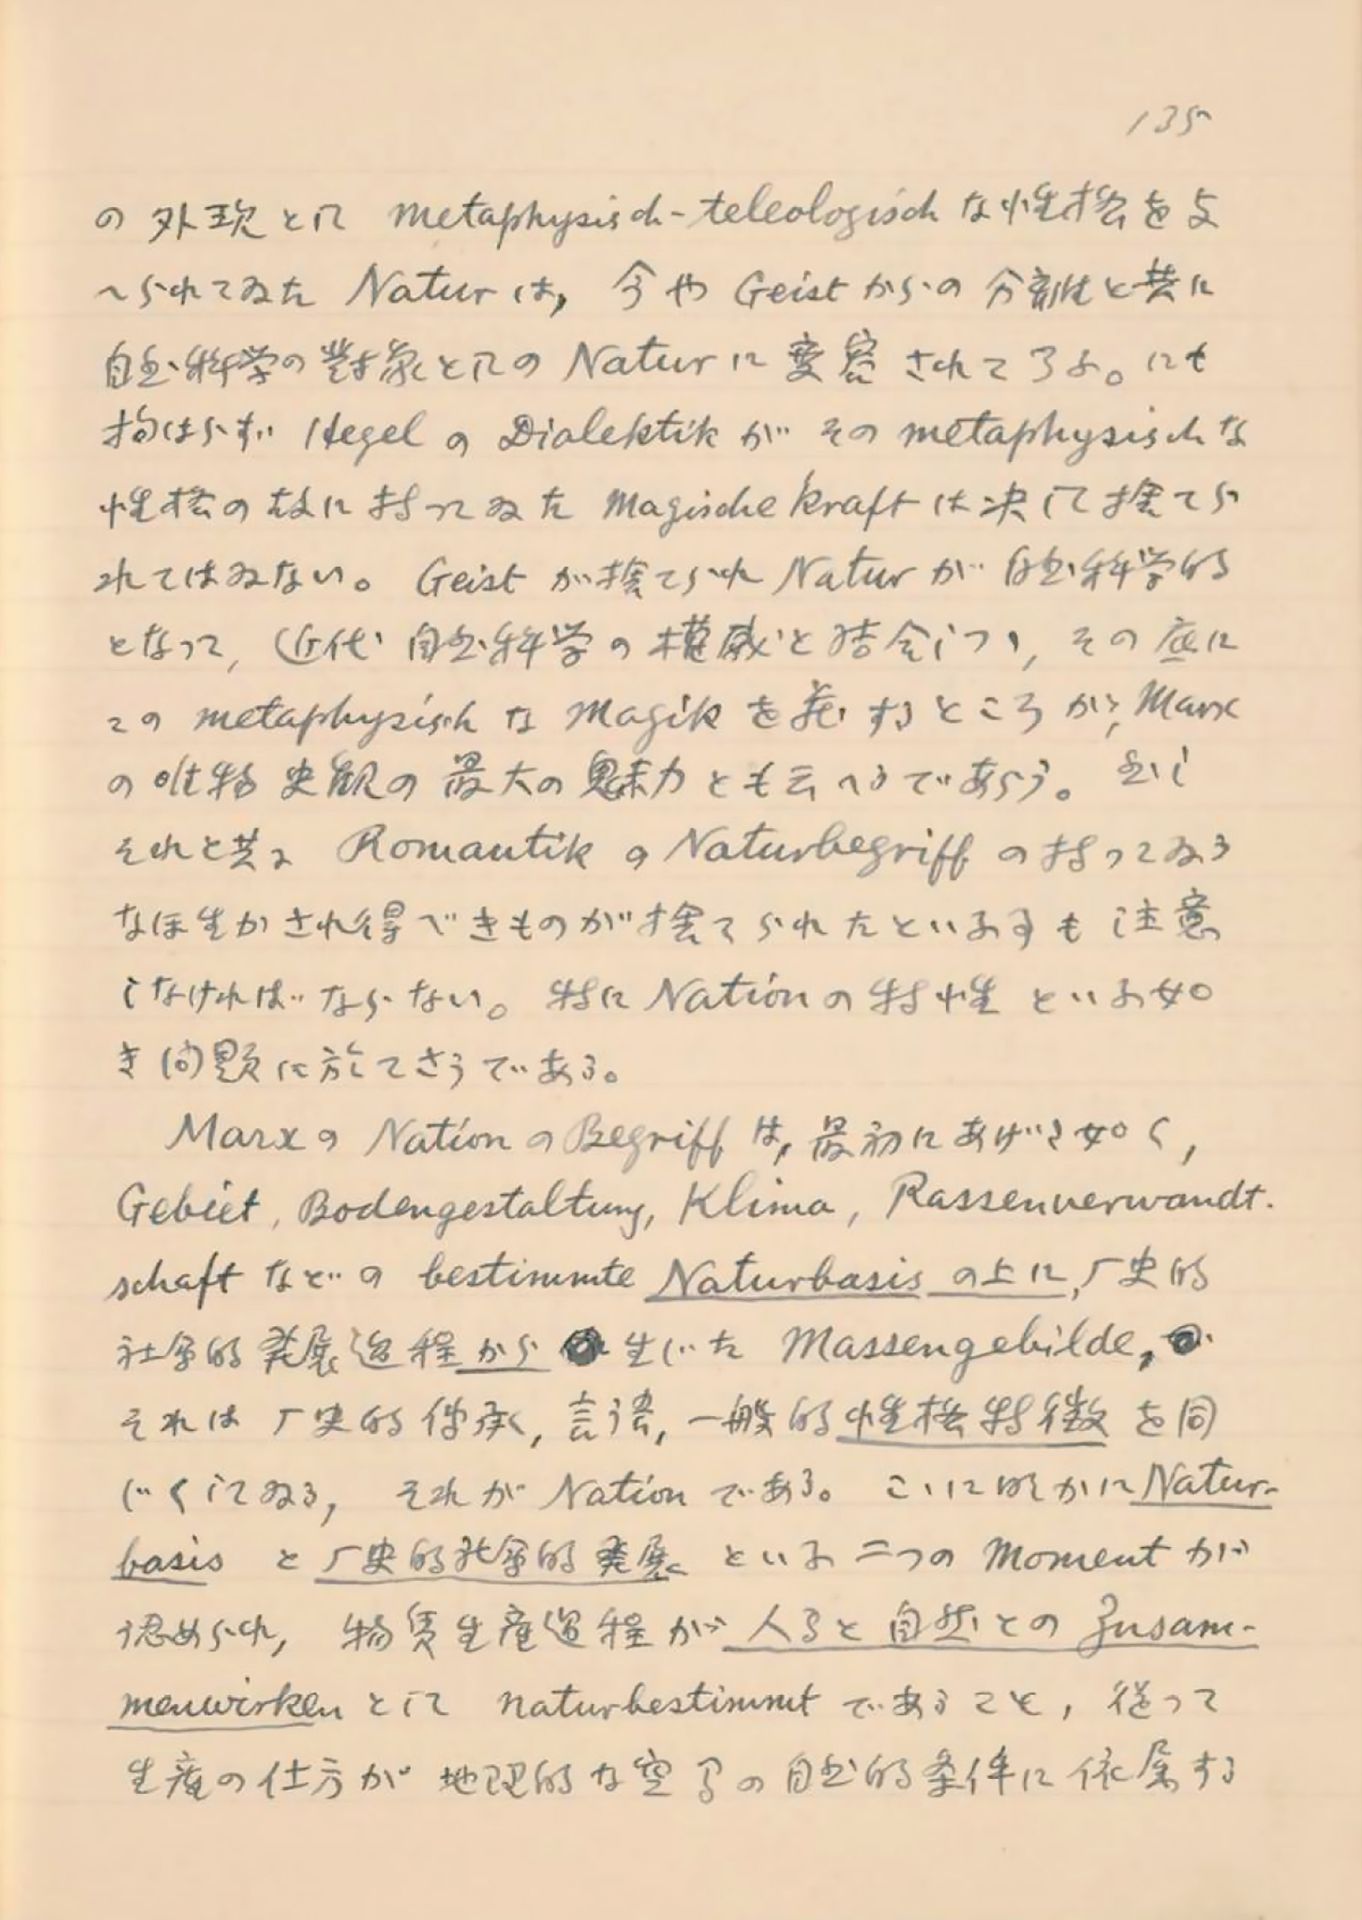 135
の外現として metaphysisch-teleologisch な性格を与
へられてゐた Natur は, 今や Geist からの分離と共に
自然科学の対象としての Natur に変容されてゐる。にも
拘はらず Hegel の Dialektik が その metaphysisch な
性格の故に持ってゐた Magische Kraft は決して捨てら
れてはゐない。 Geist が捨てられ Natur が 自然科学的
となって, 近代 自然科学の権威と結合しつゝ, その底に
この metaphysisch な Magik を蔵するところが, Marx
の唯物史観の最大の魅力とも云へるであらう。 然し
それと共に Romantik の Naturbegriff の持ってゐる
なほ生かされ得べきものが捨てられたといふ事も注意
しなければならない。 特に Nation の特性 といふ如
き問題に於てさうである。
Marx の Nation の Begriff は, 最初にあげた如く,
Gebiet, Bodengestaltung, Klima, Rassenverwandt-
schaft などの bestimmte Naturbasis の上に, 厂史的
社会的発展過程から 生じた Massengebilde,
それは 厂史的伝承, 言語, 一般的性格特徴を同
じくしてゐる, それが Nation である。 こゝに明かに Natur-
basis と 厂史的社会的発展 といふ 二つの Moment が
認められ, 物質生産過程が 人間と自然との Zusam-
menwirken として naturbestimmt であること, 従って
生産の仕方が 地理的な空間の自然的条件に依属する